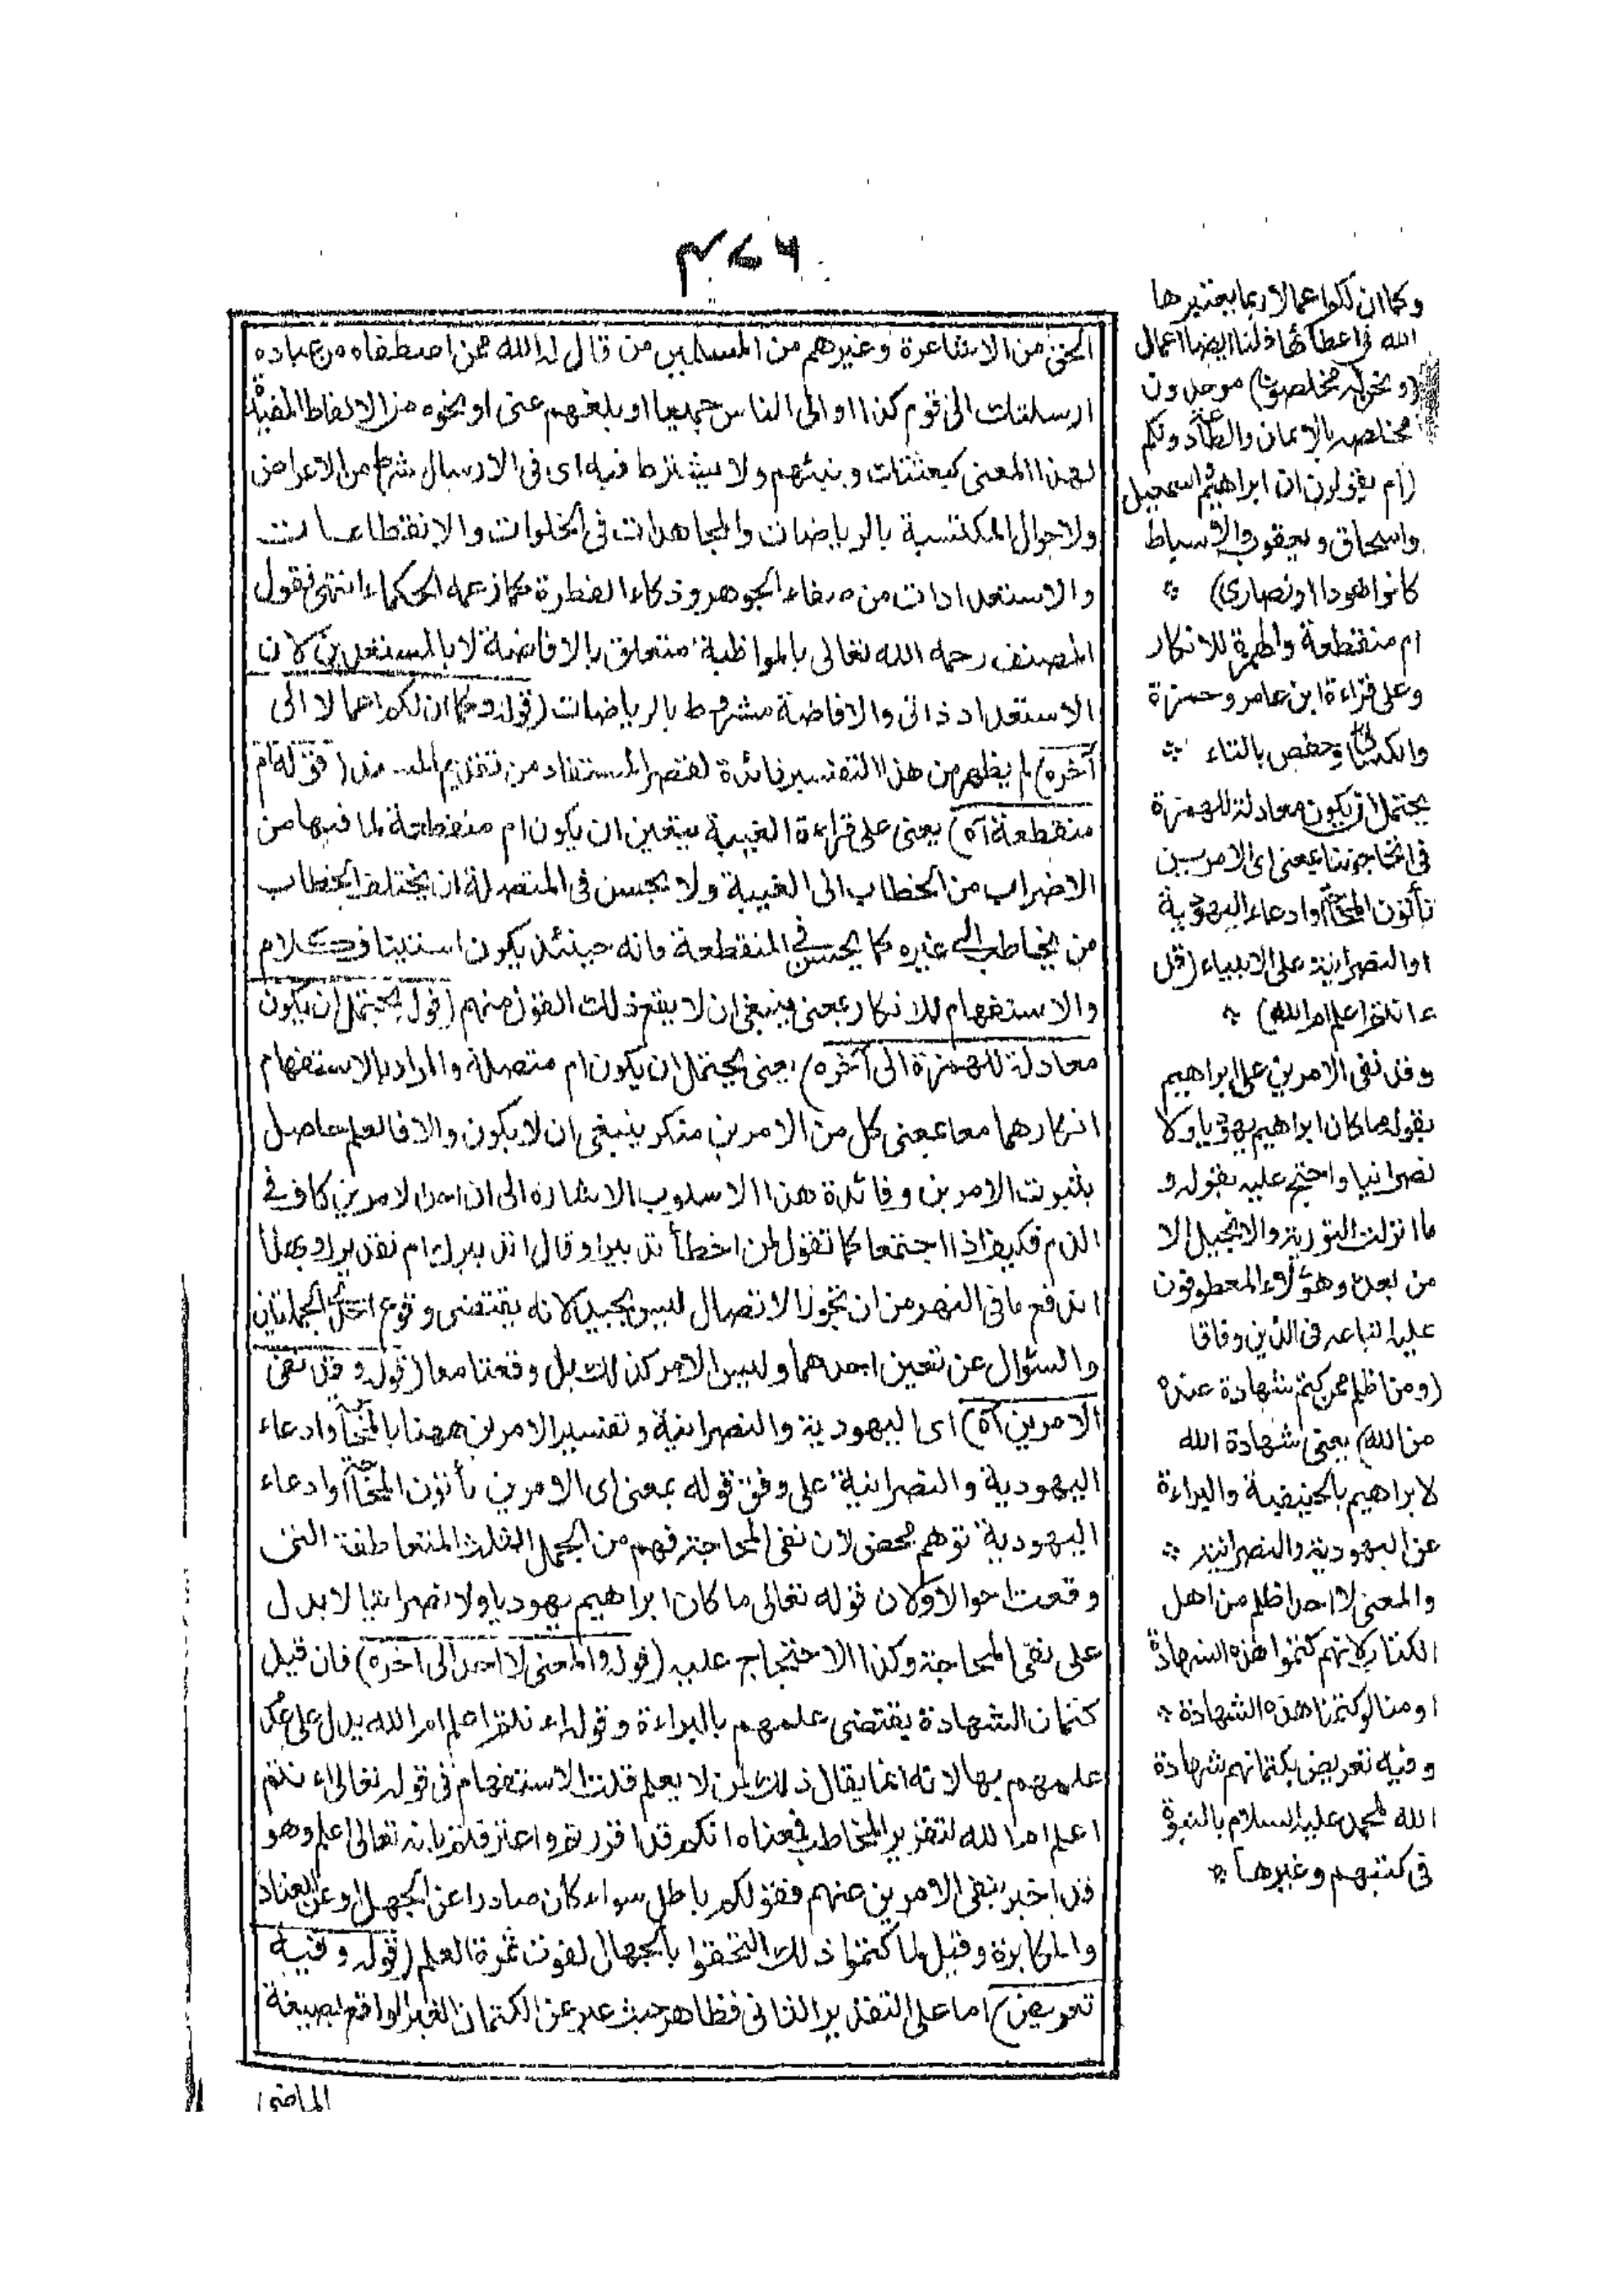 ٤٧٦
الحق من الاشاعرة وغيرهم من المسلمين من قال له الله ممن اصطفاه من عباده
ارسلتك الى قوم كذا او الى الناس جميعا او بلغهم عنى او نحوه من الالفاظ المفيدة
لهذا المعنى كبعثتك ونبئهم ولا يشترط فيه اى فى الارسال شرط من الاعراض
ولاحوال المكتسبة بالرياضات والمجاهدات فى الخلوات والانقطاعات
والاستعدادات من صفاء الجوهر وذكاء الفطرة كما زعمه الحكماء انتهى فقول
المصنف رحمه الله تعالى بالمواظبة متعلق بالافاضة لا بالمستعدين لان
الاستعداد ذاتى والافاضة مشروط بالرياضات (قوله وكما ان لكم اعمالا الى
آخره) لم يظهر من هذا التفسير فائدة لقصر المستفاد من تقديم المسند (قوله ام
منقطعة آه) يعنى على قراءة الغيبة يتعين ان يكون ام منقطعة لما فيها من
الاضراب من الخطاب الى الغيبة ولا يحسن فى المتصلة ان يختلف الخطاب
من مخاطب الى غيره كما يحسن فى المنقطعة فانه حينئذ يكون استينافكلام
والاستفهام للانكار بمعنى ينبغى ان لا يقع ذلك القول منهم (قوله يحتمل ان يكون
معادلة للهمزة الى آخره) يعنى يحتمل ان يكون ام متصلة والمراد بالاستفهام
انكارهما معا بمعنى كل من الامرين منكر ينبغى ان لا يكون والا فالعلم حاصل
بثبوت الامرين وفائدة هذا الاسلوب الاشارة الى ان احد الامرين كاف فى
الذم فكيف اذا اجتمعا كما تقول لمن اخطأ تدبيرا وقالا تدبيرك ام تقديرك وبهذا
اندفع ما فى النهر من ان تجويز الاتصال ليس بجيد لانه يقتضى وقوع احدى الجملتين
والسؤال عن تعين احدهما وليس الامر كذلك بل وقعتا معا (قوله وقد نفى
الامرين آه) اى اليهودية والنصرانية وتفسير الامرين ههنا بالمحاجة وادعاء
اليهودية والنصرانية على وفق قوله بمعنى اى الامرين تأتون المحاجة او ادعاء
اليهودية توهم محض لان نفى المحاجة فهم من الجمل الثلث المتعاطفة التى
وقعت احوالا ولان قوله تعالى ما كان ابراهيم يهوديا ولا نصرانيا لا يدل
على نفى المحاجة وكذا الاحتجاج عليه (قوله والمعنى لا احد الى آخره) فان قيل
كتمان الشهادة يقتضى علمهم بالبراءة وقوله اء نتم اعلم ام الله يدل على عدم
علمهم بها لانه انما يقال ذلك لمن لا يعلم قلت الاستفهام فى قوله تعالى اء نتم
اعلم ام الله لتقرير المخاطب فمعناه انكم قد اقررتم واعترفتم بانه تعالى اعلم وهو
قد اخبر بنفى الامرين عنهم فقولكم باطل سواء كان صادرا عن الجهل او عن العناد
والمكابرة وقيل لما كتموا ذلك التحقوا بالجهال لفوت ثمرة العلم (قوله وفيه
تعريض) اما على التقدير الثانى فظاهر حيث عبر عن الكتمان الغير الواقع بصيغة
الماضى
وكما ان لكم اعمالا ربما يعتبرها
الله فى اعطائها فلنا ايضا اعمال
(ونحن له مخلصون) موحدون
مخلصه بالايمان والطاعة دونكم
(ام يقولون ان ابراهيم واسمعيل
واسحاق ويعقوب والاسباط
كانوا هودا او نصارى) ؞
ام منقطعة والهمزة للانكار
وعلى قراءة ابن عامر وحمزة
والكسائى وحفص بالتاء ؞
يحتمل ان يكون معادلة للهمزة
فى اتحاجوننا بمعنى اى الامرين
تأتون المحاجة او ادعاء اليهودية
او النصرانية على الانبياء (قل
ءانتم اعلم ام الله) ؞
وقد نفى الامرين عن ابراهيم
بقوله ما كان ابراهيم يهوديا ولا
نصرانيا واحتج عليه بقوله و
ما انزلت التورية والانجيل الا
من بعده وهؤلاء المعطوفون
عليه اتباعه فى الدين وفاقا
(ومن اظلم ممن كتم شهادة عنده
من الله) يعنى شهادة الله
لابراهيم بالحنيفية والبراءة
عن اليهودية والنصرانية ؞
والمعنى لا احد اظلم من اهل
الكتاب لانهم كتموا هذه الشهادة
او منا لو كتمنا هذه الشهادة ؞
وفيه تعريض بكتمانهم شهادة
الله لمحمد عليه السلام بالنبوة
فى كتبهم وغيرها ؞